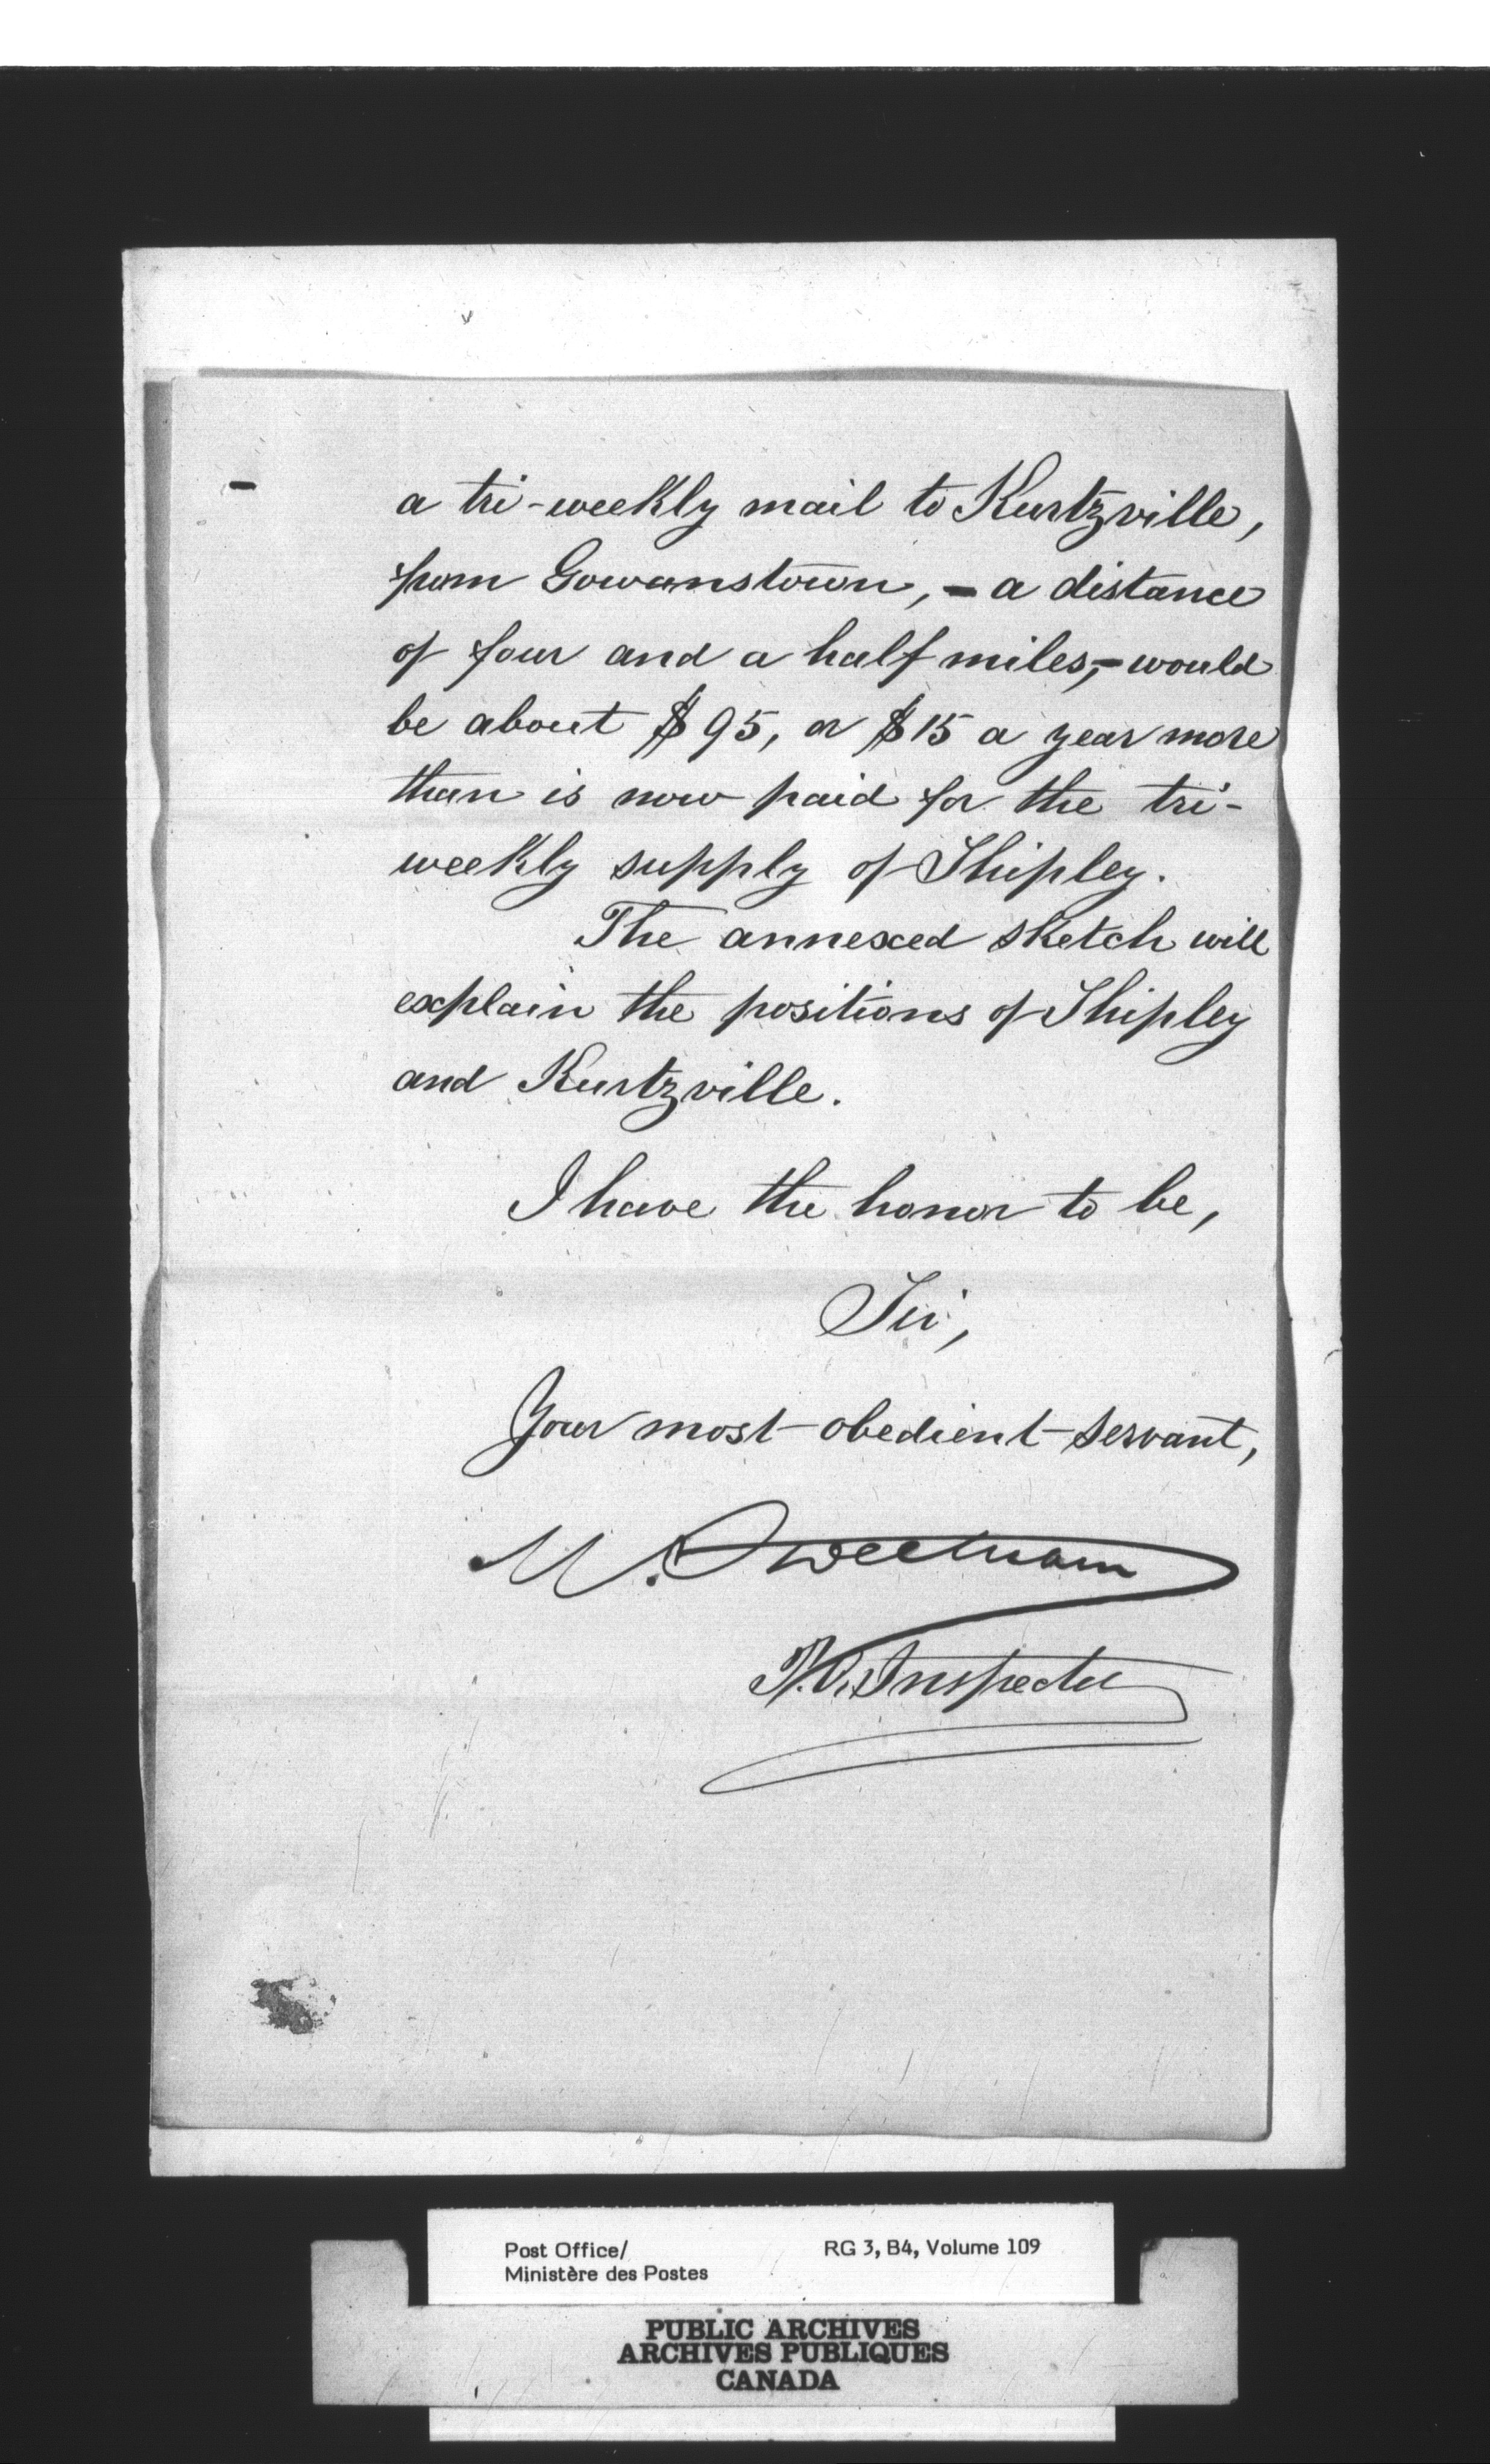 a tri-weekly mail to Kurtzville,
from Gowanstown, - a distance
of four and a half miles, - would
be about $95, or $15 a year more
than is now paid for the tri-
weekly supply of Shipley.
The annexed sketch will
explain the positions of Shipley
and Kurtzville.
I have the honor to be,
Sir,
Your most obedient servant,
M. Sweetnam
P.O. Inspector
Post Office/ RG 3, B4, Volume 109
Ministère des Postes
PUBLIC ARCHIVES
ARCHIVES PUBLIQUES
CANADA